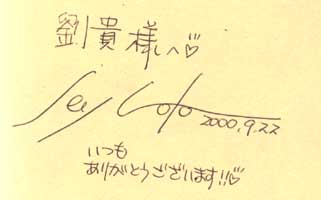 劉貴様へ♡
2000.9.22
いつも
ありがとうございます!!♡